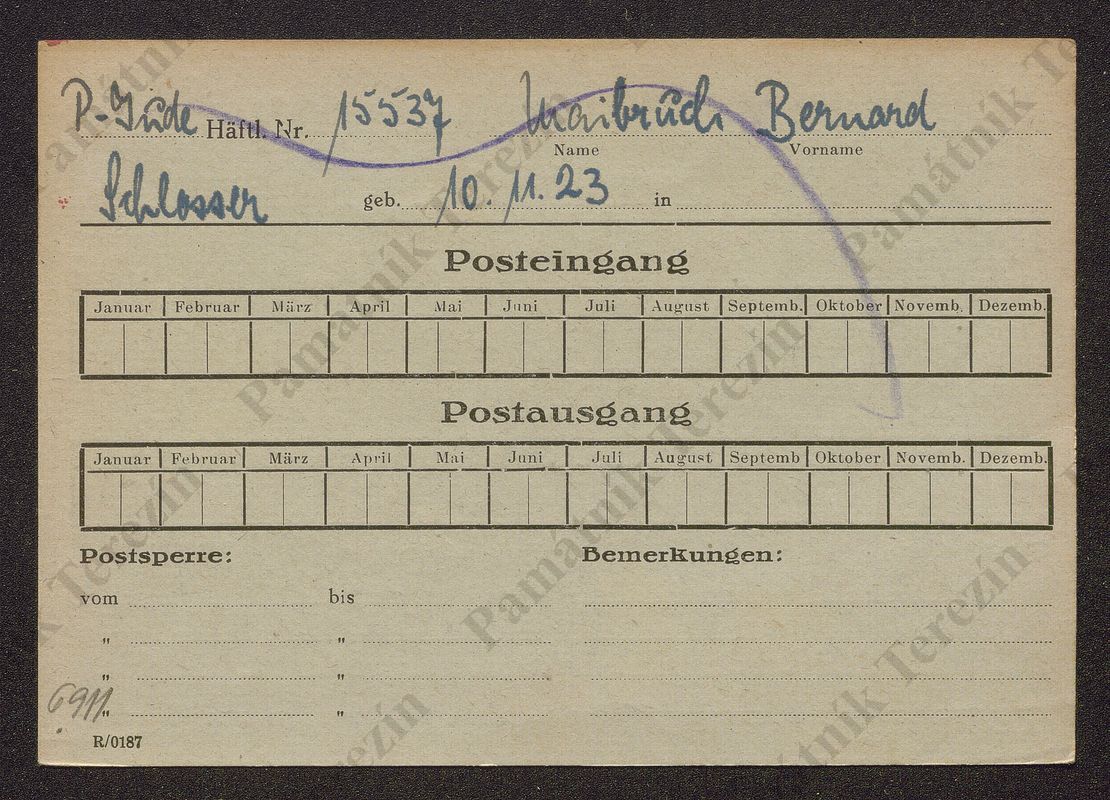 P-Jude Häftl. Nr. 15537 Maibruch Bernard
Name Vorname
Schlosser geb. 10. 11. 23 in
Posteingang
Januar Februar März April Mai Juni Juli August Septemb. Oktober Novemb. Dezemb.
Postausgang
Januar Februar März April Mai Juni Juli August Septemb Oktober Novemb. Dezemb.
Postsperre: Bemerkungen:
vom bis
" "
" "
6911 " "
R/0187
Památník Terezín